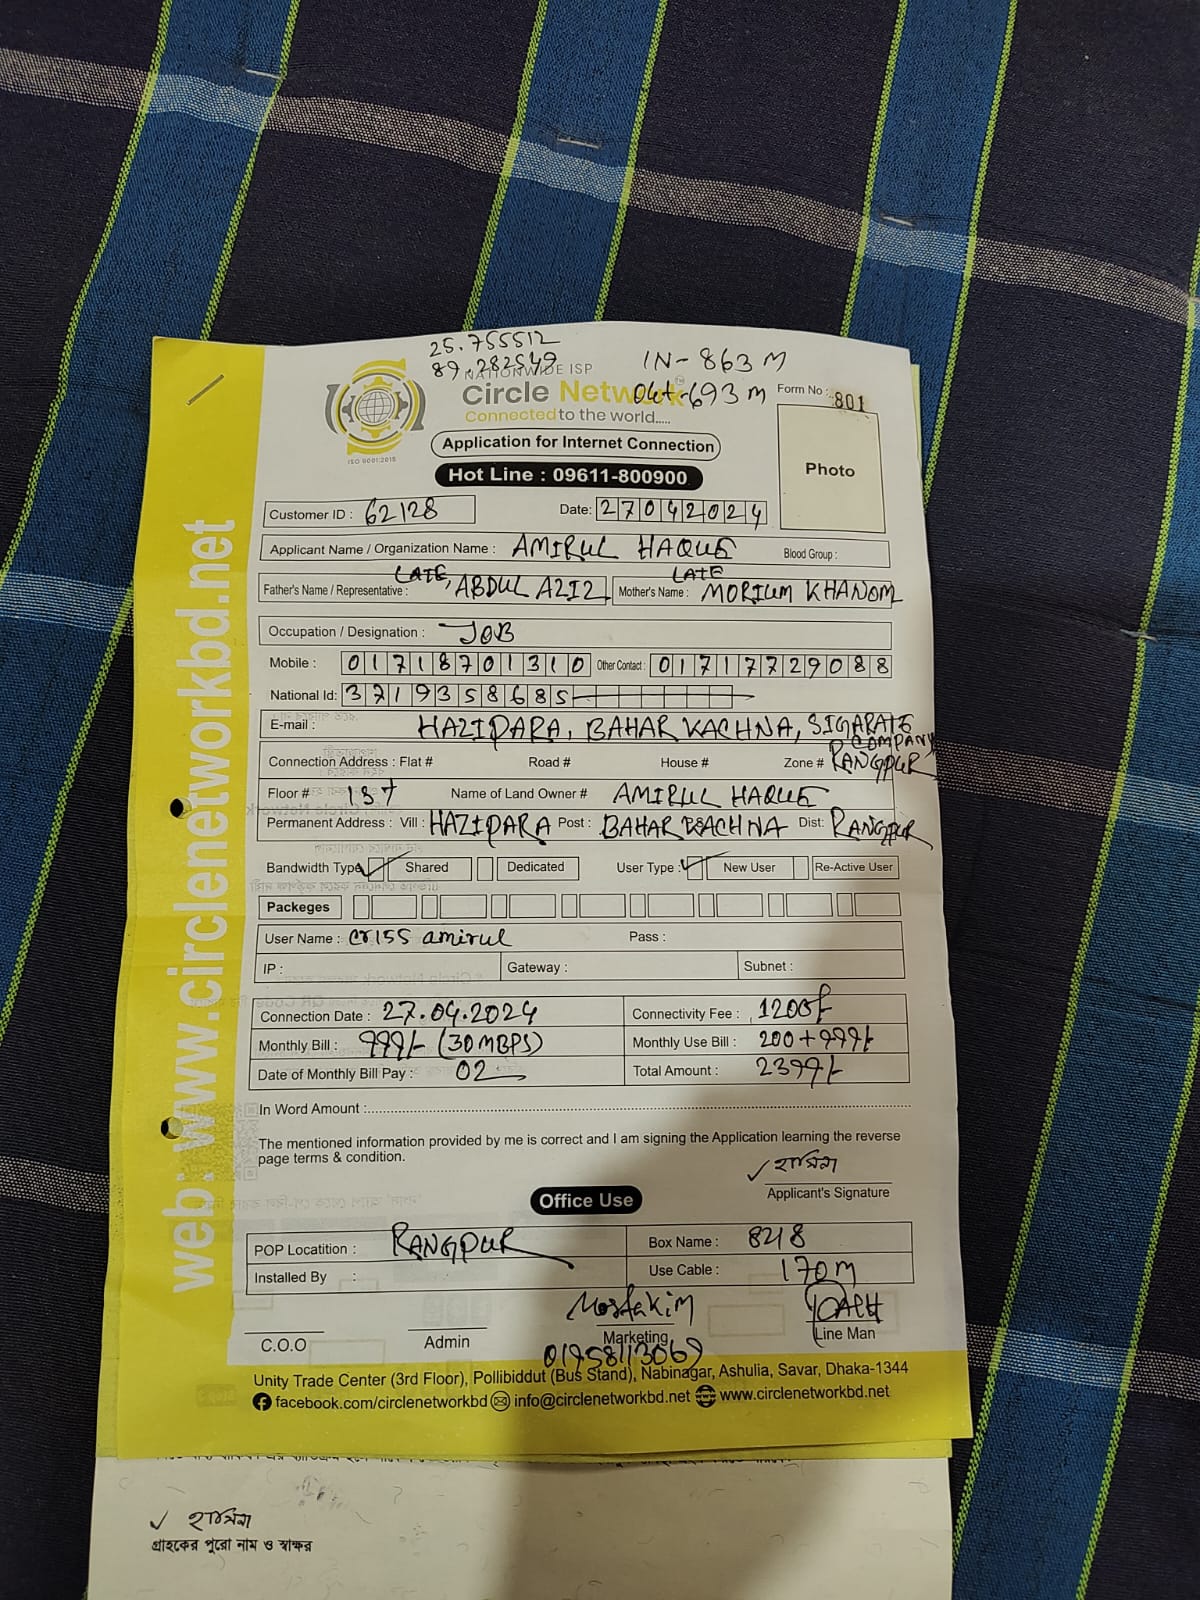 25.755512
89.282549 IN-863 M
NATIONWIDE ISP
Circle Network Out-693 M Form No : 801
Connected to the world.....
ISO 9001:2015
Application for Internet Connection
Photo
Hot Line : 09611-800900
Customer ID : 62128 Date: 27042024
Applicant Name / Organization Name : AMIRUL HAQUE Blood Group :
Father's Name / Representative : LATE, ABDUL AZIZ Mother's Name : LATE MORIUM KHANOM
Occupation / Designation : JOB
Mobile : 01718701310 Other Contact : 01717729088
National Id: 3719358685
E-mail : HAZIPARA, BAHAR KACHNA, SIGARATE COMPANY
Connection Address : Flat # Road # House # Zone # RANGPUR
Floor # 1st Name of Land Owner # AMIRUL HAQUE
Permanent Address : Vill : HAZIPARA Post : BAHAR KACHNA Dist: RANGPUR
Bandwidth Type ✓ Shared Dedicated User Type : ✓ New User Re-Active User
Packeges
User Name : cr155 amirul Pass :
IP : Gateway : Subnet :
Connection Date : 27.04.2024 Connectivity Fee : 1200/-
Monthly Bill : 999/- (30MBPS) Monthly Use Bill : 200+999/-
Date of Monthly Bill Pay : 02 Total Amount : 2399/-
In Word Amount :
The mentioned information provided by me is correct and I am signing the Application learning the reverse
page terms & condition.
✓ হাসিনা
Applicant's Signature
Office Use
POP Locatition : RANGPUR Box Name : 8218
Installed By : Use Cable : 170M
Mostakim
C.O.O Admin Marketing Line Man
Unity Trade Center (3rd Floor), Pollibiddut (Bus Stand), Nabinagar, Ashulia, Savar, Dhaka-1344
facebook.com/circlenetworkbd info@circlenetworkbd.net www.circlenetworkbd.net
web: www.circlenetworkbd.net
✓ হাসিনা
গ্রাহকের পুরো নাম ও স্বাক্ষর